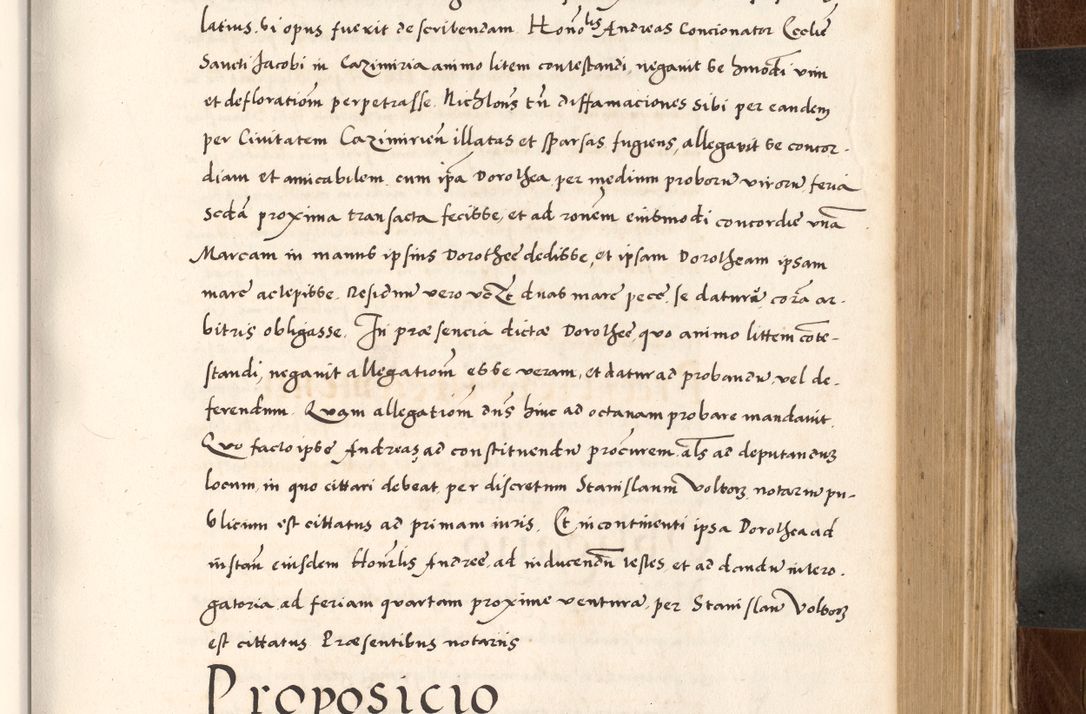 latius, vi opus fuerit describendam. Honolis Andreas Concionator Ecclie
Sancti Jacobi in Cazimiria animo litem contestandi, negavit se hmodi vim
et defloratiom perpetrasse. Nichlons tn diffamaciones sibi per eandem
per Civitatem Cazimirien illatas et sparsas fugiens, allegavit se concor-
diam et amicabilem cum ipa Dorothea per medium proborum virorum feria
scda proxima transacta fecisse, et ad ronem eiusmodi concordie una
Marcam in manus ipsius Dorothee dedisse, et ipsam Dorotheam ipsam
marc accepisse. Residuum vero duas marc pecc se datura cora ar-
bitris obligasse. In præsencia dictæ Dorothee, quo animo littem cote-
standi, negavit allegatiom esse veram, et datur ad probandum, vel de-
ferendum. Quam allegatiom dns hinc ad octavam probare mandavit.
Quo facto ipse Andreas, ad constituendum procurem, als ad deputandum
locum, in quo cittari debeat, per discretum Stanislaum notarium pu-
blicum est cittatus ad primam iuris. Et in continenti ipsa Dorothea ad
instam eiusdem Honrlis Andree, ad inducendn testes, et ad dandum intero-
gatoria, ad feriam quartam proxime ventura, per Stanislaum
est cittatus. Præsentibus notariis
Proposicio